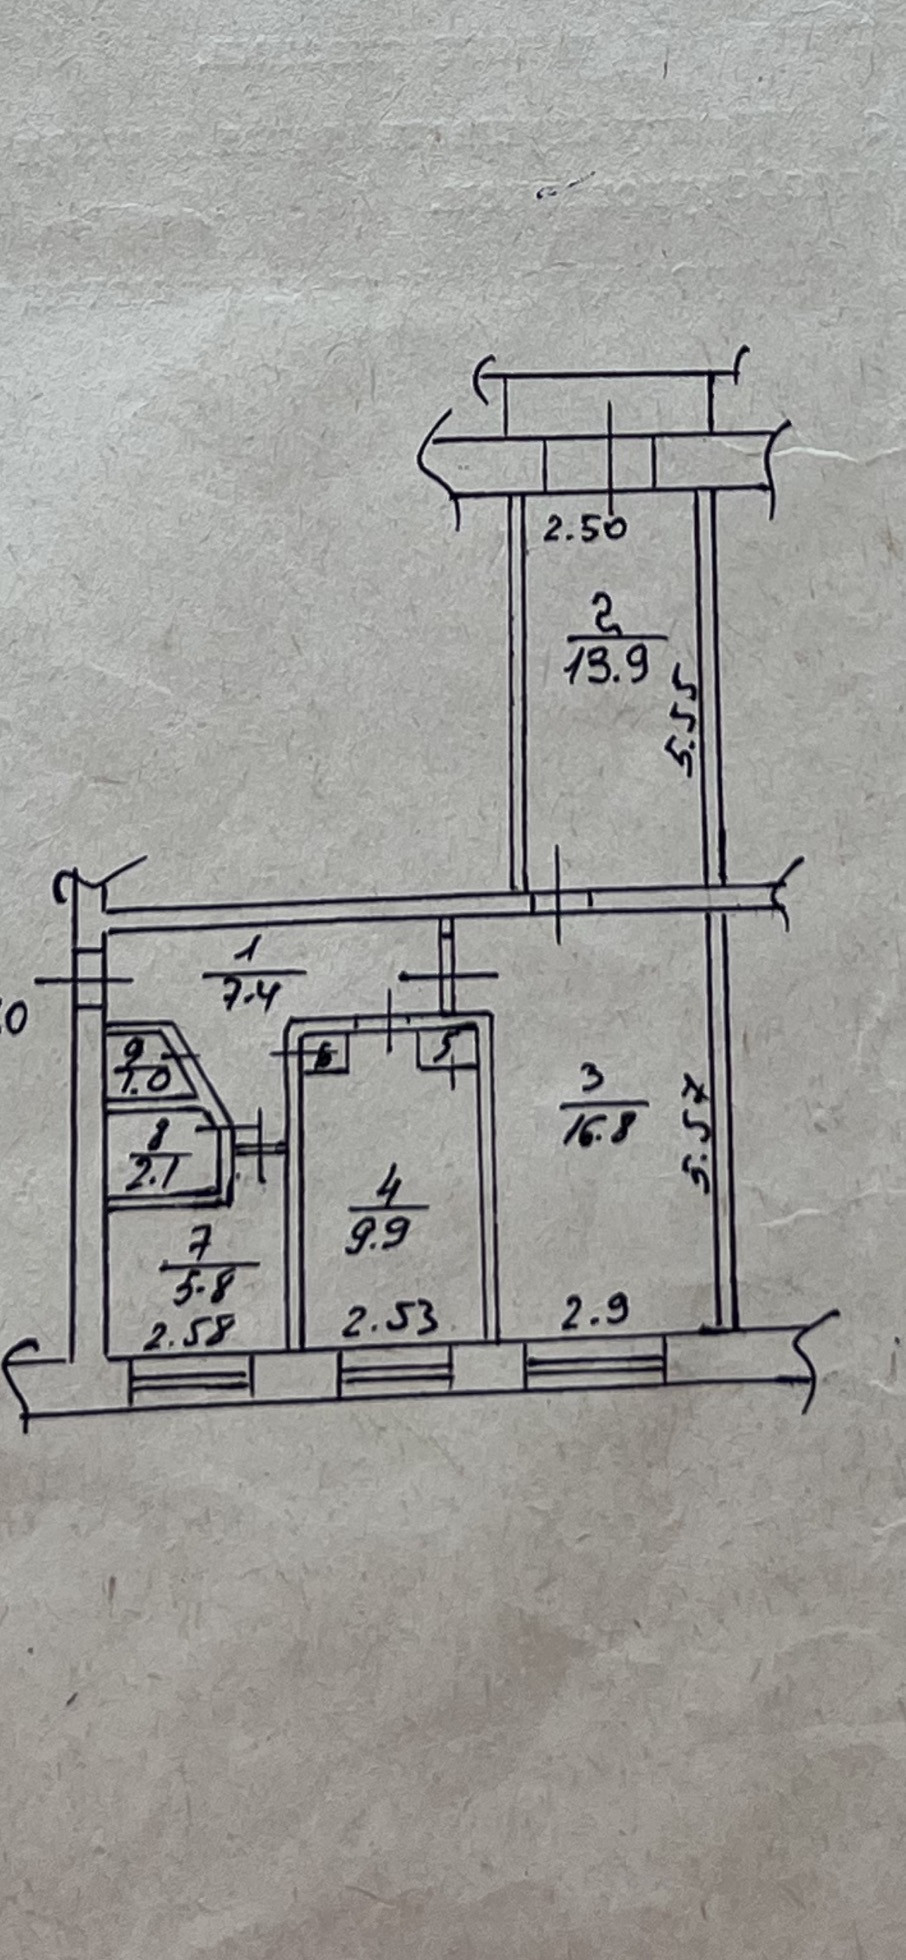 2.50
2
13.9
5.55
1
7.4
0
9
1.0
6
5
3
16.8
5.57
8
2.1
4
9.9
7
5.8
2.58
2.53
2.9